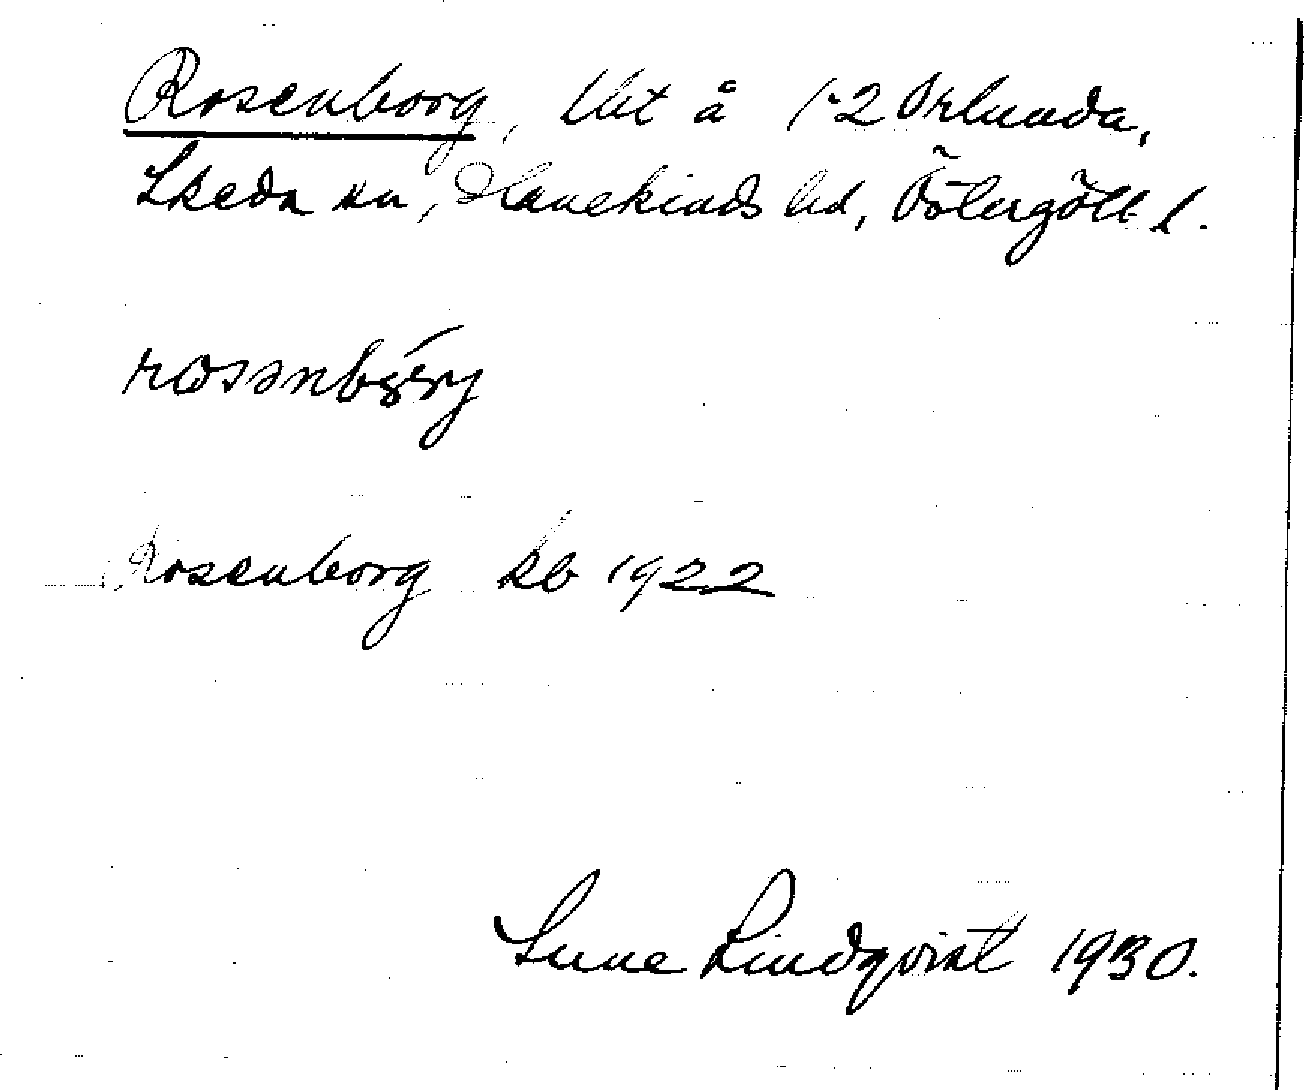 Rosenborg, lht å 1-2 Orlunda,
Skeda sn, Hanekinds hd, Östergötl l.
Rosenborg kb 1922
Sune Lindqvist 1930.